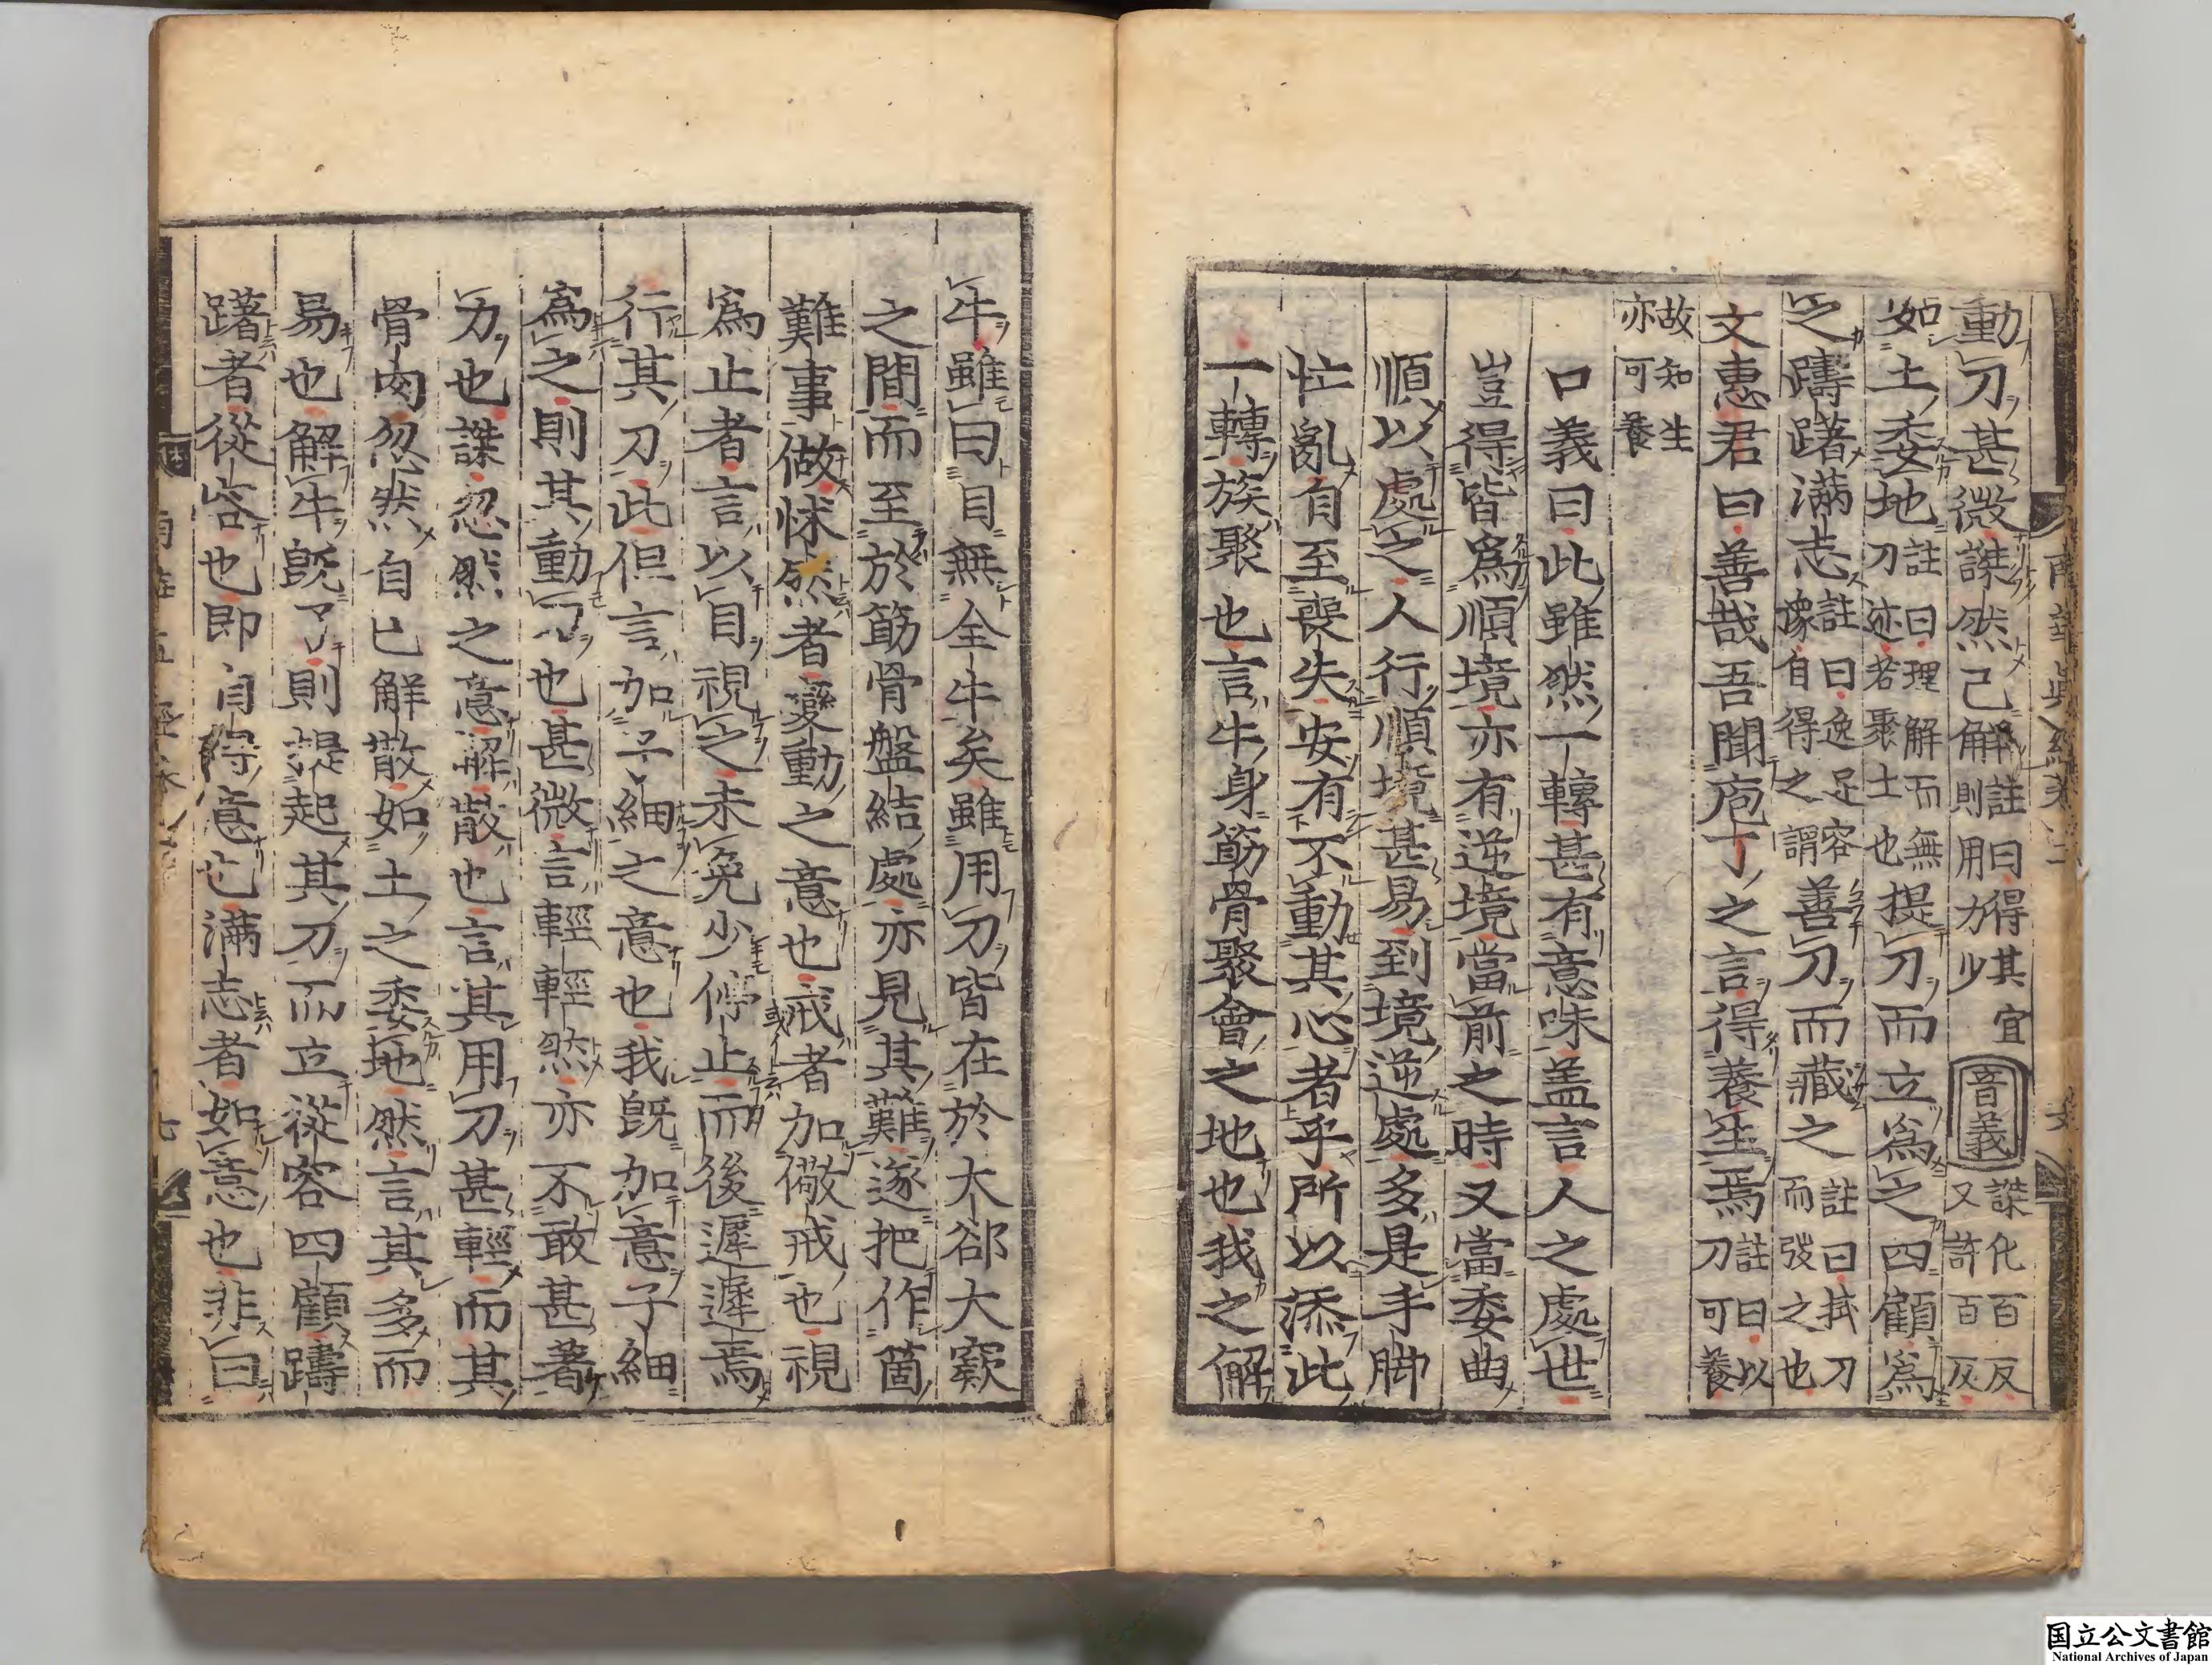 動刀甚微謋然已解註曰得其宜則用力少音義謋化百反又許百反
如土委地註曰理解而無刀迹若聚土也提刀而立爲之四顧爲
之躊躇滿志註曰逸足容豫自得之謂善刀而藏之註曰拭刀而弢之也
文惠君曰善哉吾聞庖丁之言得養生焉註曰以刀可養
故知生亦可養
口義曰此雖然一轉甚有意味盖言人之處世
豈得皆爲順境亦有逆境當前之時又當委曲
順以處之人行順境甚易到境逆處多是手脚
忙亂自至喪失安有不動其心者乎所以添此
一轉族聚也言牛身筋骨聚會之地也我之解
牛雖曰目無全牛矣雖用刀皆在於大郤大窾
之間而至於筋骨盤結處亦見其難遂把作箇
難事做怵然者變動之意也戒者加儆戒也視
爲止者言以目視之未免少停止而後遲遲焉
行其刀此但言加子細之意也我旣加意子細
爲之則其動刀也甚微言輕輕然亦不敢甚著
力也謋忽然之意解散也言其用刀甚輕而其
骨肉忽然自已解散如土之委地然言其多而
易也解牛旣了則提起其刀而立從容四顧躊
躇者從容也即自得意也滿志者如意也非曰
国立公文書館
National Archives of Japan